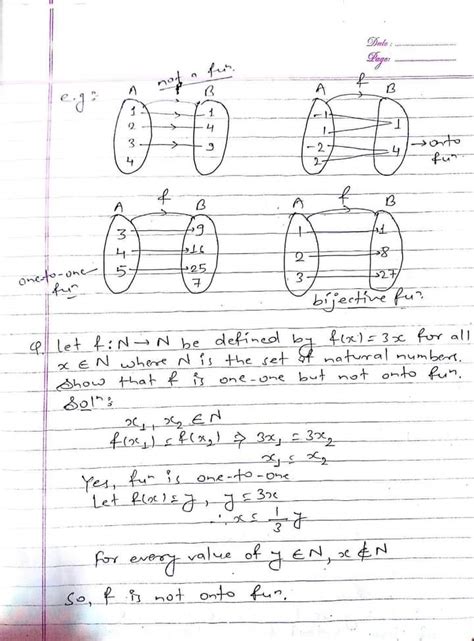 Date :
Page:
e.g:
not a fun.
A f B
1 1
2 4
3 9
4
A f B
-1
1 1
-2 4 → onto
2 fun.
A f B
3 9
4 16
5 25
7
one-to-one
fun
A f B
1 1
2 8
3 27
bijective fun.
Q. Let f : N → N be defined by f(x) = 3x for all
x ∈ N where N is the set of natural numbers.
Show that f is one-one but not onto fun.
Solⁿ:
x₁, x₂ ∈ N
f(x₁) = f(x₂) ⇒ 3x₁ = 3x₂
x₁ = x₂
Yes, fun is one-to-one
Let f(x) = y, y = 3x
∴ x = 1/3 y
For every value of y ∈ N, x ∉ N
So, f is not onto fun.